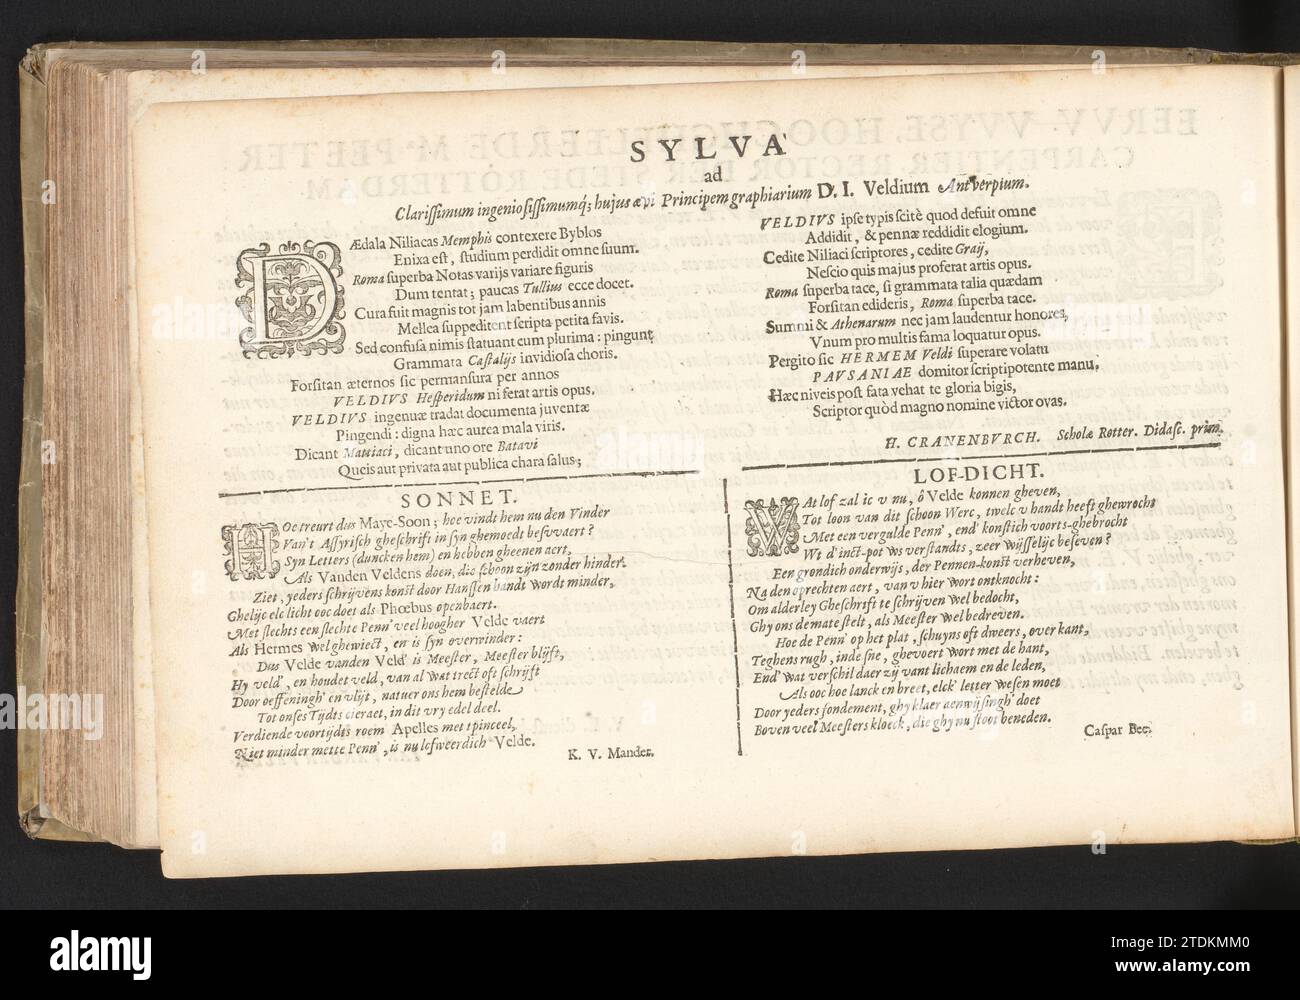 SYLVA
ad
Clarissimum ingeniosissimumq; hujus ævi Principem graphiarium D. I. Veldium Antverpium.
DÆdala Niliacas Memphis contexere Byblos
Enixa est, studium perdidit omne suum.
Roma superba Notas varijs variare figuris
Dum tentat; paucas Tullius ecce docet.
Cura fuit magnis tot jam labentibus annis
Mellea suppeditent scripta petita favis.
Sed confusa nimis statuant cum plurima: pingunt
Grammata Castalijs invidiosa choris.
Forsitan æternos sic permansura per annos
VELDIVS Hesperidum ni ferat artis opus.
VELDIVS ingenuæ tradat documenta juventæ
Pingendi: digna hæc aurea mala viris.
Dicant Mattiaci, dicant uno ore Batavi
Queis aut privata aut publica chara salus;
VELDIVS ipse typis scitè quod defuit omne
Addidit, & pennæ reddidit elogium.
Cedite Niliaci scriptores, cedite Graij,
Nescio quis majus proferat artis opus.
Roma superba tace, si grammata talia quædam
Forsitan edideris, Roma superba tace.
Summi & Athenarum nec jam laudentur honores,
Vnum pro multis fama loquatur opus.
Pergito sic HERMEM Veldi superare volatu
PAVSANIAE domitor scriptipotente manu,
Hæc niveis post fata vehat te gloria bigis,
Scriptor quòd magno nomine victor ovas.
H. CRANENBVRCH. Scholæ Rotter. Didasc. prim.
SONNET.
HOe treurt dus Maye-Soon; hoe vindt hem nu den Vinder
Van't Assyrisch gheschrift in syn ghemoedt beswaert?
Syn Letters (duncken hem) en hebben gheenen aert,
Als Vanden Veldens doen, die schoon zijn zonder hinder.
Ziet, yeders schrijvens konst door Hanssen handt wordt minder,
Ghelijc elc licht ooc doet als Phœbus openbaert.
Met slechts een slechte Penn' veel hoogher Velde vaert
Als Hermes welghewiect, en is syn overwinder:
Dus Velde vanden Veld' is Meester, Meester blijft,
Hy veld', en houdet veld, van al wat trect oft schrijft
Door oeffeningh' en vlijt, natuer ons hem bestelde
Tot onses Tijdts cieraet, in dit vry edel deel.
Verdiende voortijdts roem Apelles met tpinceel,
Niet minder mette Penn', is nu lofweerdich Velde.
K. V. Mander.
LOF-DICHT.
WAt lof zal ic v nu, ô Velde konnen gheven,
Tot loon van dit schoon Werc, twelc v handt heeft ghewrocht
Met een vergulde Penn', end' konstich voorts-ghebrocht
Wt d'inct-pot ws verstandts, zeer wijsselijc beseven?
Een grondich onderwijs, der Pennen-konst verheven,
Na den oprechten aert, van v hier wort ontknocht:
Om alderley Gheschrift te schrijven wel bedocht,
Ghy ons de mate stelt, als Meester wel bedreven.
Hoe de Penn' op het plat, schuyns oft dweers, over kant,
Teghens rugh, inde sne, ghevoert wort met de hant,
End' wat verschil daer zij vant lichaem en de leden,
Als ooc hoe lanck en breet, elck letter wesen moet
Door yeders fondement, ghy klaer aenwijsingh' doet
Boven veel Meesters kloeck, die ghy nu stoot beneden.
Caspar Bec.
alamy
Image ID: 2TDKMM0
www.alamy.com